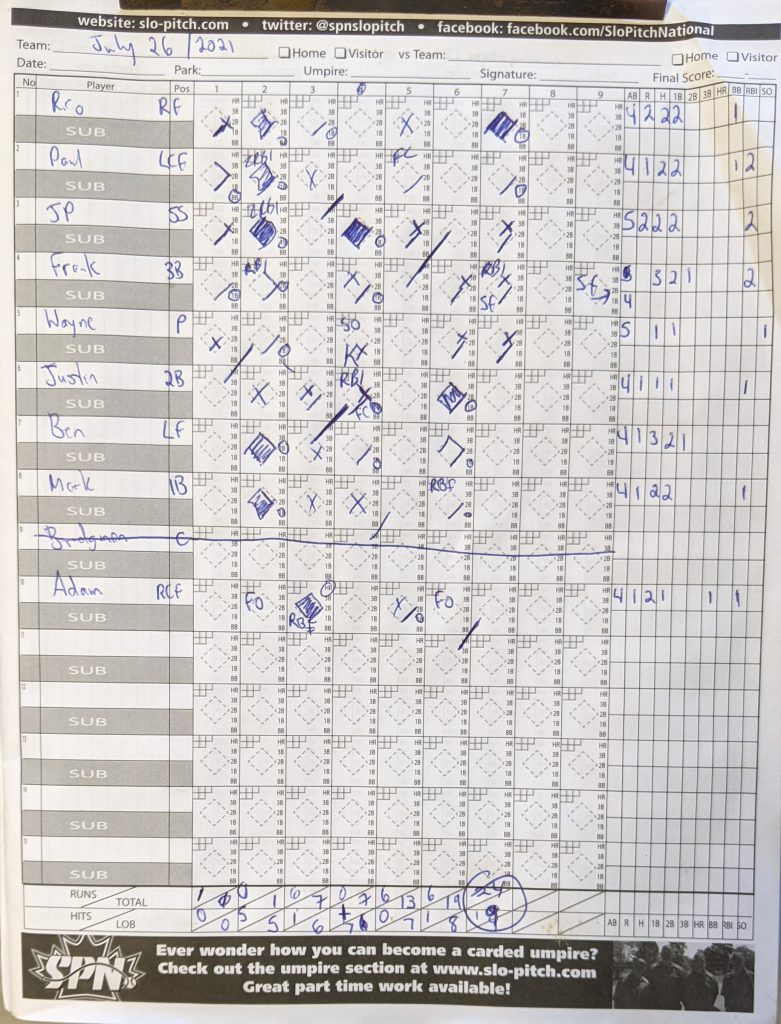 website: slo-pitch.com • twitter: @spnslopitch • facebook: facebook.com/SloPitchNational
Team: July 26/2021 Home Visitor vs Team: Home Visitor
Date: Park: Umpire: Signature: Final Score:
No Player Pos 1 2 3 4 5 6 7 8 9 AB R H 1B 2B 3B HR BB RBI SO
1 Rio RF 4 2 2 2 1
SUB
2 Paul LCF FC 4 1 2 2 1 2
SUB
3 JP SS 2RBI 5 2 2 2 2
SUB
4 Frank 3B RBI RBI SF SF 3 2 1 2
SUB 4
5 Wayne P SO K 5 1 1 1
SUB
6 Justin 2B RBI FC 4 1 1 1 1
SUB
7 Ben LF 4 1 3 2 1
SUB
8 Mark 1B RBI 4 1 2 2 1
SUB
9 C
SUB
10 Adam RCF FO RBI FO 4 1 2 1 1 1
SUB
11
SUB
12
SUB
13
SUB
14
SUB
15
SUB
RUNS TOTAL
HITS LOB AB R H 1B 2B 3B HR BB RBI SO
SPN
Ever wonder how you can become a carded umpire?
Check out the umpire section at www.slo-pitch.com
Great part time work available!